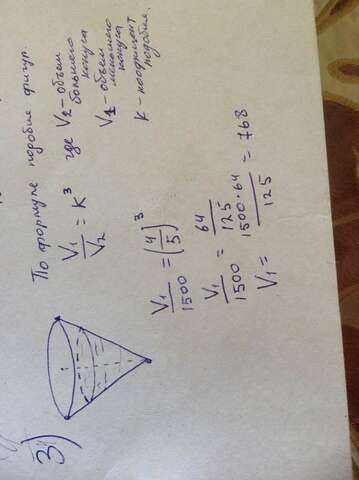 3)
По формуле подобие фигур.
V₁/V₂ = K³ где V₂ - объем большего конуса
V₁ - объем меньшего конуса
K - коэффициент подобие.
V₁/1500 = (4/5)³
V₁/1500 = 64/125
V₁ = 1500·64/125 = 768